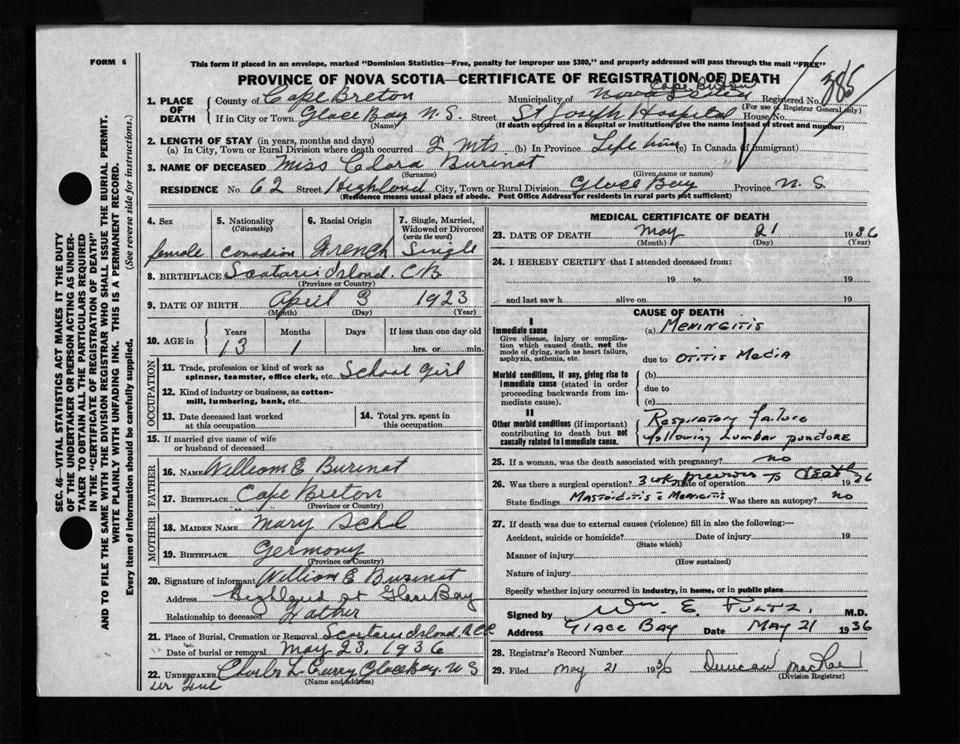 FORM 6
This form if placed in an envelope, marked "Dominion Statistics—Free, penalty for improper use $300," and properly addressed will pass through the mail "FREE"
PROVINCE OF NOVA SCOTIA—CERTIFICATE OF REGISTRATION OF DEATH
385
1. PLACE OF DEATH
County of Cape Breton Municipality of Cape Breton Registered No.
(For use of Registrar General only)
If in City or Town Glace Bay N.S. Street St Joseph Hospital House No.
(Name) (If death occurred in a hospital or institution, give the name instead of street and number)
2. LENGTH OF STAY (in years, months and days)
(a) In City, Town or Rural Division where death occurred 2 mts (b) In Province Life time (c) In Canada (if immigrant)
3. NAME OF DECEASED Miss Clara Burinot
(Surname) (Given name or names)
RESIDENCE No. 62 Street Highland City, Town or Rural Division Glace Bay Province N.S.
(Residence means usual place of abode. Post Office Address for residents in rural parts not sufficient)
4. Sex female
5. Nationality (Citizenship) Canadian
6. Racial Origin French
7. Single, Married, Widowed or Divorced (write the word) Single
8. BIRTHPLACE Scatarie Island. CB
(Province or Country)
9. DATE OF BIRTH April 3 1923
(Month) (Day) (Year)
10. AGE in Years 13 Months 1 Days If less than one day old hrs. or min.
OCCUPATION
11. Trade, profession or kind of work as spinner, teamster, office clerk, etc. School Girl
12. Kind of industry or business, as cotton-mill, lumbering, bank, etc.
13. Date deceased last worked at this occupation
14. Total yrs. spent in this occupation
15. If married give name of wife or husband of deceased
FATHER
16. NAME William E Burinot
17. BIRTHPLACE Cape Breton
(Province or Country)
MOTHER
18. MAIDEN NAME Mary
19. BIRTHPLACE Germany
(Province or Country)
20. Signature of informant William E Burinot
Address Highland st Glace Bay
Relationship to deceased Father
21. Place of Burial, Cremation or Removal Scatarie Island,
Date of burial or removal May 23, 1936
22. UNDERTAKER Charles L Curry Glace bay, N S
(Name and address)
MEDICAL CERTIFICATE OF DEATH
23. DATE OF DEATH May 21 1936
(Month) (Day) (Year)
24. I HEREBY CERTIFY that I attended deceased from:
19 to 19
and last saw h alive on 19
CAUSE OF DEATH
I
Immediate cause
Give disease, injury or complication which caused death, not the mode of dying, such as heart failure, asphyxia, asthenia, etc.
(a) Meningitis
due to Otitis Media
Morbid conditions, if any, giving rise to immediate cause (stated in order proceeding backwards from immediate cause).
(b)
due to
(c)
II
Other morbid conditions (if important) contributing to death but not causally related to immediate cause.
Respiratory failure
following Lumbar puncture
25. If a woman, was the death associated with pregnancy? no
26. Was there a surgical operation? 3 wk previous to death Date of operation 1936
State findings Mastoiditis & Meningitis Was there an autopsy? no
27. If death was due to external causes (violence) fill in also the following:—
Accident, suicide or homicide? Date of injury 19
(State which)
Manner of injury
(How sustained)
Nature of injury
Specify whether injury occurred in industry, in home, or in public place
Signed by Wm. E. Fultz. M.D.
Address Glace Bay Date May 21 1936
28. Registrar's Record Number
29. Filed May 21 1936 Duncan MacRae
(Division Registrar)
SEC. 46—VITAL STATISTICS ACT MAKES IT THE DUTY
OF THE UNDERTAKER OR PERSON ACTING AS UNDER-
TAKER TO OBTAIN ALL THE PARTICULARS REQUIRED
IN THE "CERTIFICATE OF REGISTRATION OF DEATH"
AND TO FILE THE SAME WITH THE DIVISION REGISTRAR WHO SHALL ISSUE THE BURIAL PERMIT.
WRITE PLAINLY WITH UNFADING INK. THIS IS A PERMANENT RECORD.
Every item of information should be carefully supplied. (See reverse side for instructions.)